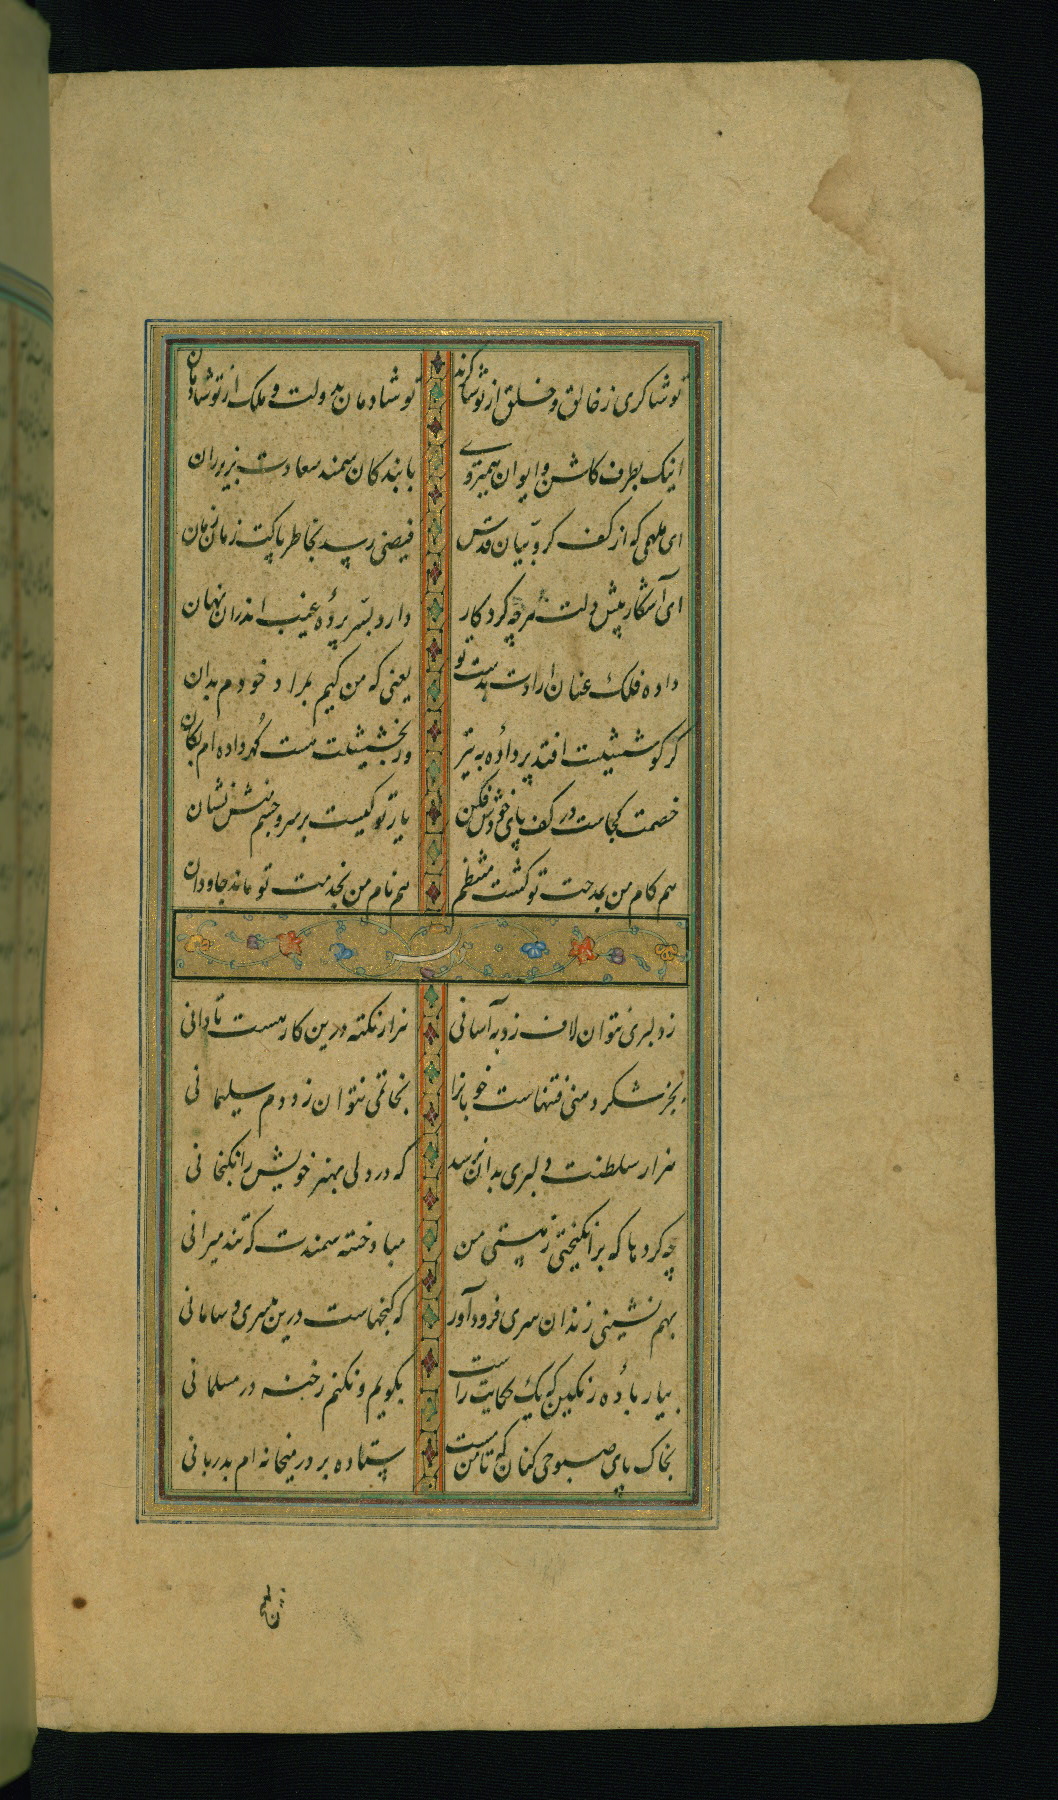 تو شاکری ز خالق و خلق از تو شاکرند تو شادمان بدولت و ملک از تو شادمان
اینک بطرف کلشن و ایوان همیروی با بندکان سمند سعادت بزیر ران
ای ملهمی که از کف کروبیان قدس فیضی رسد بخاطر پاکت زمان زمان
ای آشکار پیش دلت هرچه کردکار دارد بسر پردهٔ غیب اندران نهان
داده فلک عنان ارادت بدست تو یعنی که من کیم بمراد خودم بدان
کر کوششیت افتد پر داده به تیر ور بخششیت هست کهر داده‌ام بکان
خصمت کجاست در کف پای خودش فکن یار تو کیست بر سر و چشم منش نشان
هم کام من بمدحت تو کشت منتظم هم نام من بخدمت تو ماند جاودان
ز دلبری نتوان لاف زد به آسانی هزار نکته درین کار هست تا دانی
بجز شکر دهنی فتنهاست خوبانرا بخاتمی نتوان زد دم سلیمانی
هزار سلطنت دلبری بدان نرسد که در دلی بهنر خویش را بکنجانی
چه کردها که برانکیختی ز هستی من مباد خسته سمندت که تند میرانی
بهم نشینی رندان سری فرود آور که کنجهاست درین بیسری و سامانی
بیار بادهٔ رنکین که یک حکایت راست بکویم و نکنم رخنه در مسلمانی
بخاک پای صبوحی کنان که تا من مست ستاده بر در میخانه‌ام بدربانی